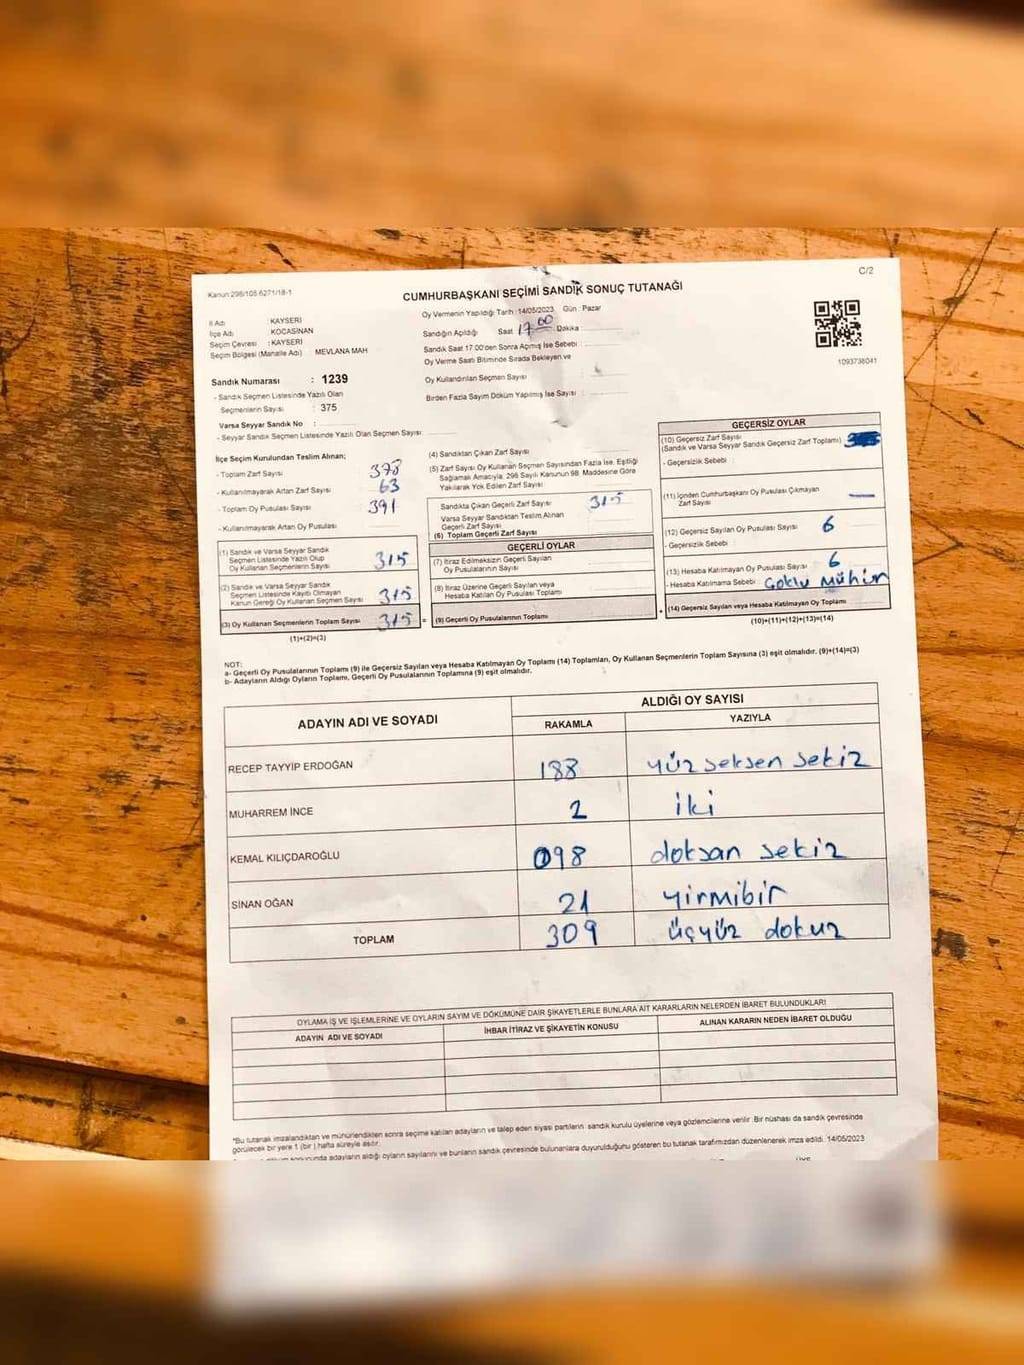 C/2
Kanun 298/105 6271/18-1
CUMHURBAŞKANI SEÇİMİ SANDIK SONUÇ TUTANAĞI
İl Adı KAYSERİ
İlçe Adı KOCASİNAN
Seçim Çevresi : KAYSERİ
Seçim Bölgesi (Mahalle Adı) MEVLANA MAH
Sandık Numarası : 1239
- Sandık Seçmen Listesinde Yazılı Olan
Seçmenlerin Sayısı : 375
Varsa Seyyar Sandık No :
- Seyyar Sandık Seçmen Listesinde Yazılı Olan Seçmen Sayısı
Oy Vermenin Yapıldığı Tarih :14/05/2023 Gün : Pazar
Sandığın Açıldığı Saat 17.00 Dakika
Sandık Saat 17.00'den Sonra Açılmış İse Sebebi :
Oy Verme Saati Bitiminde Sırada Bekleyen ve
Oy Kullandırılan Seçmen Sayısı :
Birden Fazla Sayım Döküm Yapılmış İse Sayısı :
1093738041
İlçe Seçim Kurulundan Teslim Alınan;
- Toplam Zarf Sayısı 378
- Kullanılmayarak Artan Zarf Sayısı 63
- Toplam Oy Pusulası Sayısı 391
- Kullanılmayarak Artan Oy Pusulası
(1) Sandık ve Varsa Seyyar Sandık
Seçmen Listesinde Yazılı Olup
Oy Kullanan Seçmenlerin Sayısı 315
(2) Sandık ve Varsa Seyyar Sandık
Seçmen Listesinde Kayıtlı Olmayan
Kanun Gereği Oy Kullanan Seçmen Sayısı 315
(3) Oy Kullanan Seçmenlerin Toplam Sayısı 315 =
(1)+(2)=(3)
(4) Sandıktan Çıkan Zarf Sayısı
(5) Zarf Sayısı Oy Kullanan Seçmen Sayısından Fazla İse, Eşitliği
Sağlamak Amacıyla, 298 Sayılı Kanunun 98. Maddesine Göre
Yakılarak Yok Edilen Zarf Sayısı
Sandıkta Çıkan Geçerli Zarf Sayısı 315
Varsa Seyyar Sandıktan Teslim Alınan
Geçerli Zarf Sayısı
(6) Toplam Geçerli Zarf Sayısı
GEÇERLİ OYLAR
(7) İtiraz Edilmeksizin Geçerli Sayılan
Oy Pusulalarının Sayısı
(8) İtiraz Üzerine Geçerli Sayılan veya
Hesaba Katılan Oy Pusulası Toplamı
(9) Geçerli Oy Pusulalarının Toplamı +
GEÇERSİZ OYLAR
(10) Geçersiz Zarf Sayısı
(Sandık ve Varsa Seyyar Sandık Geçersiz Zarf Toplamı)
- Geçersizlik Sebebi :
(11) İçinden Cumhurbaşkanı Oy Pusulası Çıkmayan
Zarf Sayısı —
(12) Geçersiz Sayılan Oy Pusulası Sayısı 6
- Geçersizlik Sebebi :
(13) Hesaba Katılmayan Oy Pusulası Sayısı 6
- Hesaba Katılmama Sebebi : Çoklu Mühür
(14) Geçersiz Sayılan veya Hesaba Katılmayan Oy Toplamı
(10)+(11)+(12)+(13)=(14)
NOT:
a- Geçerli Oy Pusulalarının Toplamı (9) ile Geçersiz Sayılan veya Hesaba Katılmayan Oy Toplamı (14) Toplamları, Oy Kullanan Seçmenlerin Toplam Sayısına (3) eşit olmalıdır. (9)+(14)=(3)
b- Adayların Aldığı Oyların Toplamı, Geçerli Oy Pusulalarının Toplamına (9) eşit olmalıdır.
ADAYIN ADI VE SOYADI ALDIĞI OY SAYISI
RAKAMLA YAZIYLA
RECEP TAYYİP ERDOĞAN 188 yüz seksen sekiz
MUHARREM İNCE 2 iki
KEMAL KILIÇDAROĞLU 098 doksan sekiz
SİNAN OĞAN 21 yirmibir
TOPLAM 309 üçyüz dokuz
OYLAMA İŞ VE İŞLEMLERİNE VE OYLARIN SAYIM VE DÖKÜMÜNE DAİR ŞİKAYETLERLE BUNLARA AİT KARARLARIN NELERDEN İBARET BULUNDUKLARI
ADAYIN ADI VE SOYADI İHBAR İTİRAZ VE ŞİKAYETİN KONUSU ALINAN KARARIN NEDEN İBARET OLDUĞU
*Bu tutanak imzalandıktan ve mühürlendikten sonra seçime katılan adayların ve talep eden siyasi partilerin sandık kurulu üyelerine veya gözlemcilerine verilir. Bir nüshası da sandık çevresinde
görülecek bir yere 1 (bir ) hafta süreyle asılır.
sonucunda adayların aldığı oyların sayılarını ve bunların sandık çevresinde bulunanlara duyurulduğunu gösteren bu tutanak tarafımızdan düzenlenerek imza edildi. 14/05/2023